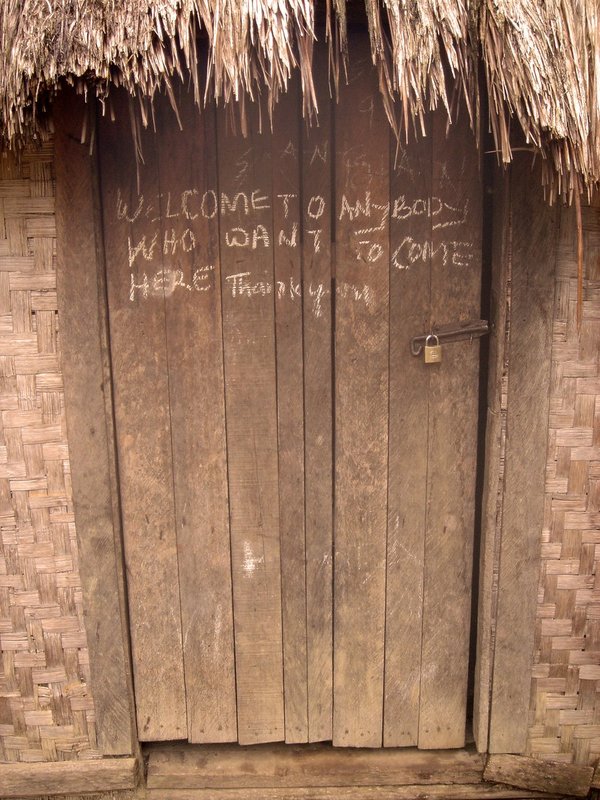 WELCOME TO ANYBODY
WHO WANT TO COME
HERE Thank you